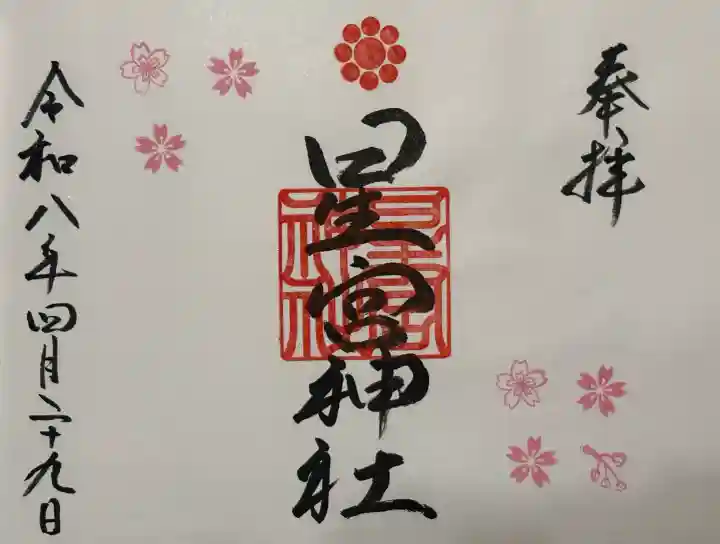 奉拝
星宮神社
令和八年四月二十九日